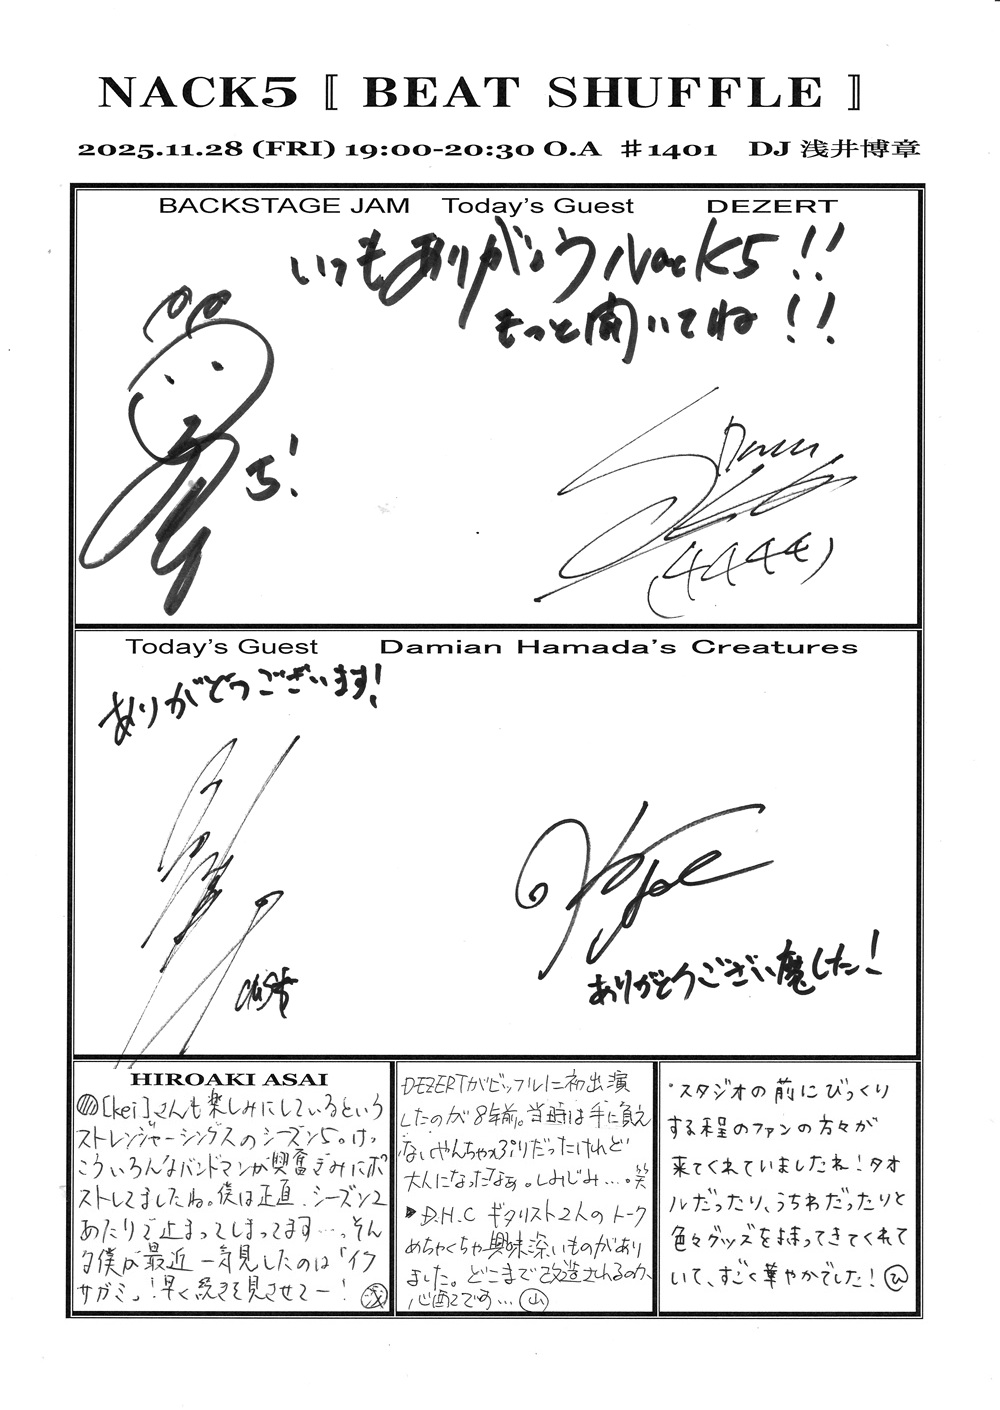 NACK5 〚 BEAT SHUFFLE 〛
2025.11.28 (FRI) 19:00-20:30 O.A ♯1401 DJ 浅井博章
BACKSTAGE JAM Today's Guest DEZERT
いつもありがとう Nack5!!
もっと聞いてね!!
(4444)
Today's Guest Damian Hamada's Creatures
ありがとうございます!
ありがとうござい魔した!
HIROAKI ASAI
[kei]さんも楽しみにしているという
ストレンジャーシングスのシーズン5。けっ
こういろんなバンドマンが興奮ぎみにポ
ストしてましたね。僕は正直、シーズン2
あたりで止まってしまってます…。そん
な僕が最近一気見したのは「イク
サガミ」!早く続きを見させてー! 浅
DEZERTがビッフルに初出演
したのが8年前。当時は手に負え
ないやんちゃっぷりだったけれど
大人になったなぁ。しみじみ…。笑
▶D.H.C ギタリスト2人のトーク
めちゃくちゃ興味深いものがあり
ました。どこまで改造されるのか、
心配です… 山
・スタジオの前にびっくり
する程のファンの方々が
来てくれていましたね!タオ
ルだったり、うちわだったりと
色々グッズを持ってきてくれて
いて、すごく華やかでした! ひ